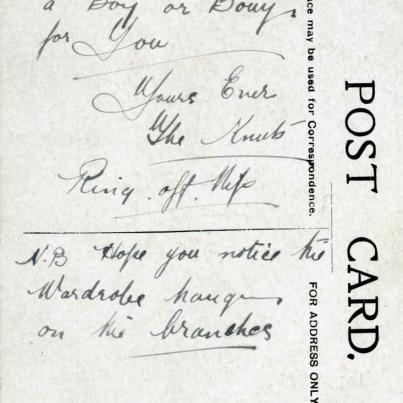 a Boy or Bouy.
for You
Yours Ever
The Knuts
Ring. off.
N.B Hope you notice the
Wardrobe hanging
on the branches
ce may be used for Correspondence.
FOR ADDRESS ONLY
POST CARD.